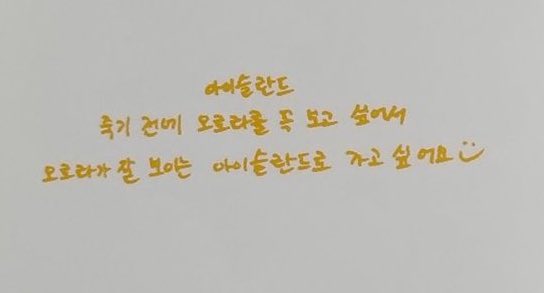 아이슬란드
죽기 전에 오로라를 꼭 보고 싶어서
오로라가 잘 보이는 아이슬란드로 가고 싶어요